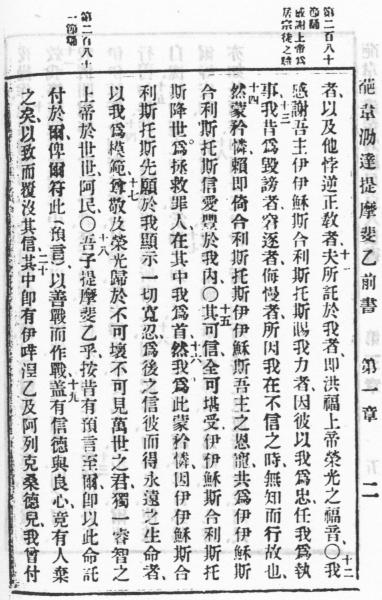 葩韋泐達提摩斐乙前書 第一章 二
第二百八十
節誦
感謝上帝爲
居宗徒之職
十一
十二
者、以及他悖逆正敎者、夫所託於我者、卽洪福上帝榮光之福音〇我
感謝吾主伊伊穌斯合利斯托斯賜我力者、因彼以我爲忠、任我爲執
十三
事、我昔爲毀謗者、窘逐者、侮慢者、所因我在不信之時、無知而行故也、
十四
然蒙矜憐、賴卽倚合利斯托斯伊伊穌斯吾主之恩寵、共爲伊伊穌斯
十五
合利斯托斯信愛豐於我內〇其可信全可堪受、伊伊穌斯合利斯托
十六
斯降世、爲拯救罪人、在其中我爲首、然我爲此蒙矜憐、因伊伊穌斯合
利斯托斯先願於我顯示一切寬忍、爲後之信彼而得永遠之生命者、
十七
以我爲模範、尊敬及榮光歸於不可壞不可見萬世之君、獨一睿智之
第二百八十
一節誦
十八
上帝於世世、阿民〇吾子提摩斐乙乎、按昔有預言至爾、卽以此命託
十九
付於爾、俾爾符此(預言)、以善戰而作戰、蓋有信德與良心、竟有人棄
二十
之矣、以致而覆沒其信、其中卽有伊哶涅乙及阿列克桑德兒、我曾付